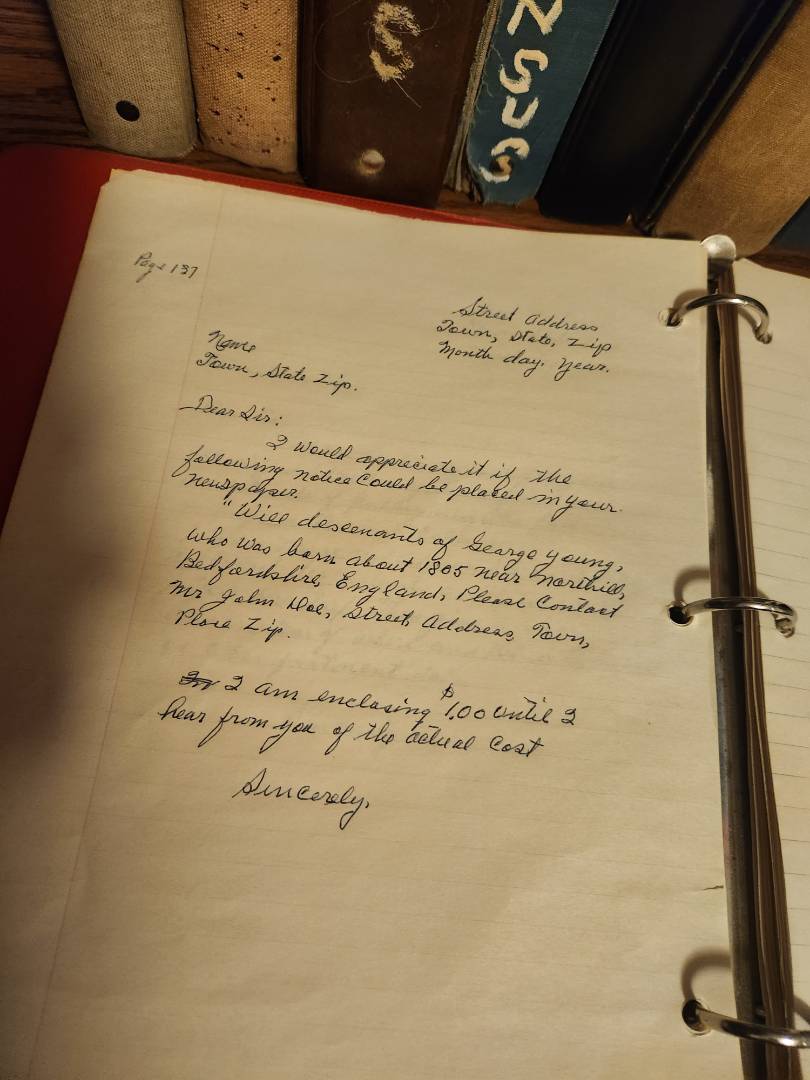 S
NSUS
Page 137
Street Address
Town, State, Zip
Month day, year.
Name
Town, State Zip.
Dear Sir:
I would appreciate it if the
following notice could be placed in your
newspaper.
"Will descenants of George Young,
who was born about 1805 near Northill,
Bedfordshire, England, Please Contact
Mr John Doe, Street, Address, Town,
Place Zip.
I am enclosing $1.00 until I
hear from you of the actual cost
Sincerely,